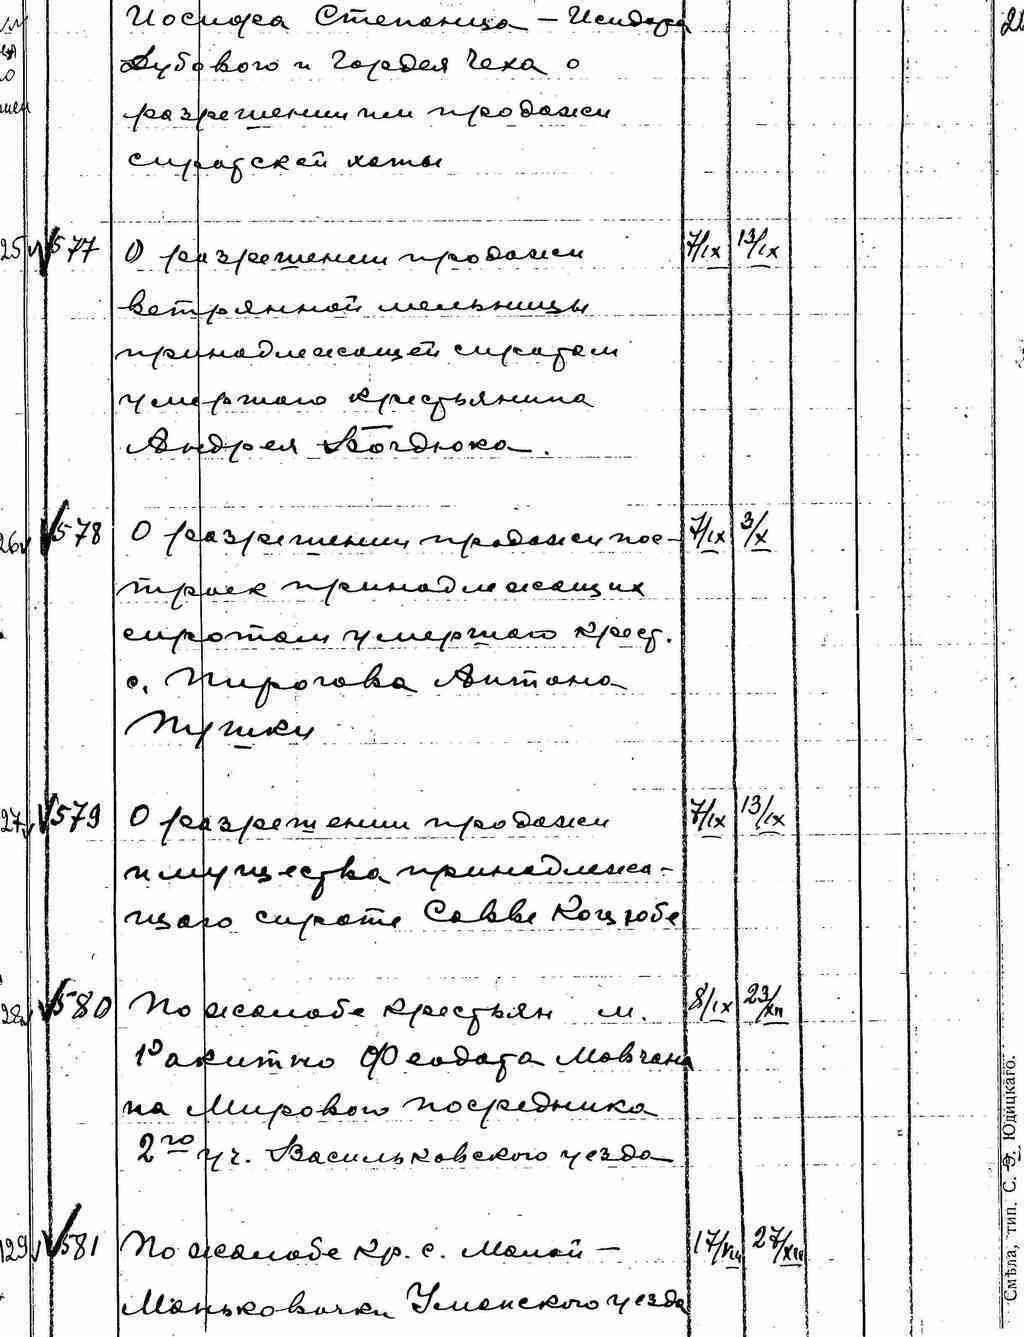 Иосифа Степанца – Исидора
Дубового и Гордея Чеха о
разрешении им продажи
сиротской хаты
25 577 О разрешении продажи 7/IX 13/IX
ветрянной мельницы
принадлежащей сиротам
умершаго крестьянина
Андрея
26 578 О разрешении продажи пос- 7/IX 3/X
троек принадлежащих
сиротам умершаго крест.
с. Пирогова Антона
Пушки
27 579 О разрешении продажи 7/IX 13/IX
имущества принадлежа-
щаго сироте Савве Коцюбе
28 580 По жалобе крестьян м. 8/IX 23/XII
Ракитно Феодота Мовчана
на Мирового посредника
2го уч. Васильковского уезда
129 581 По жалобе кр. с. Малой – 17/ 27/XII
Маньковочки Уманского уезда
Смѣла, тип. С. Э. Юдицкаго.